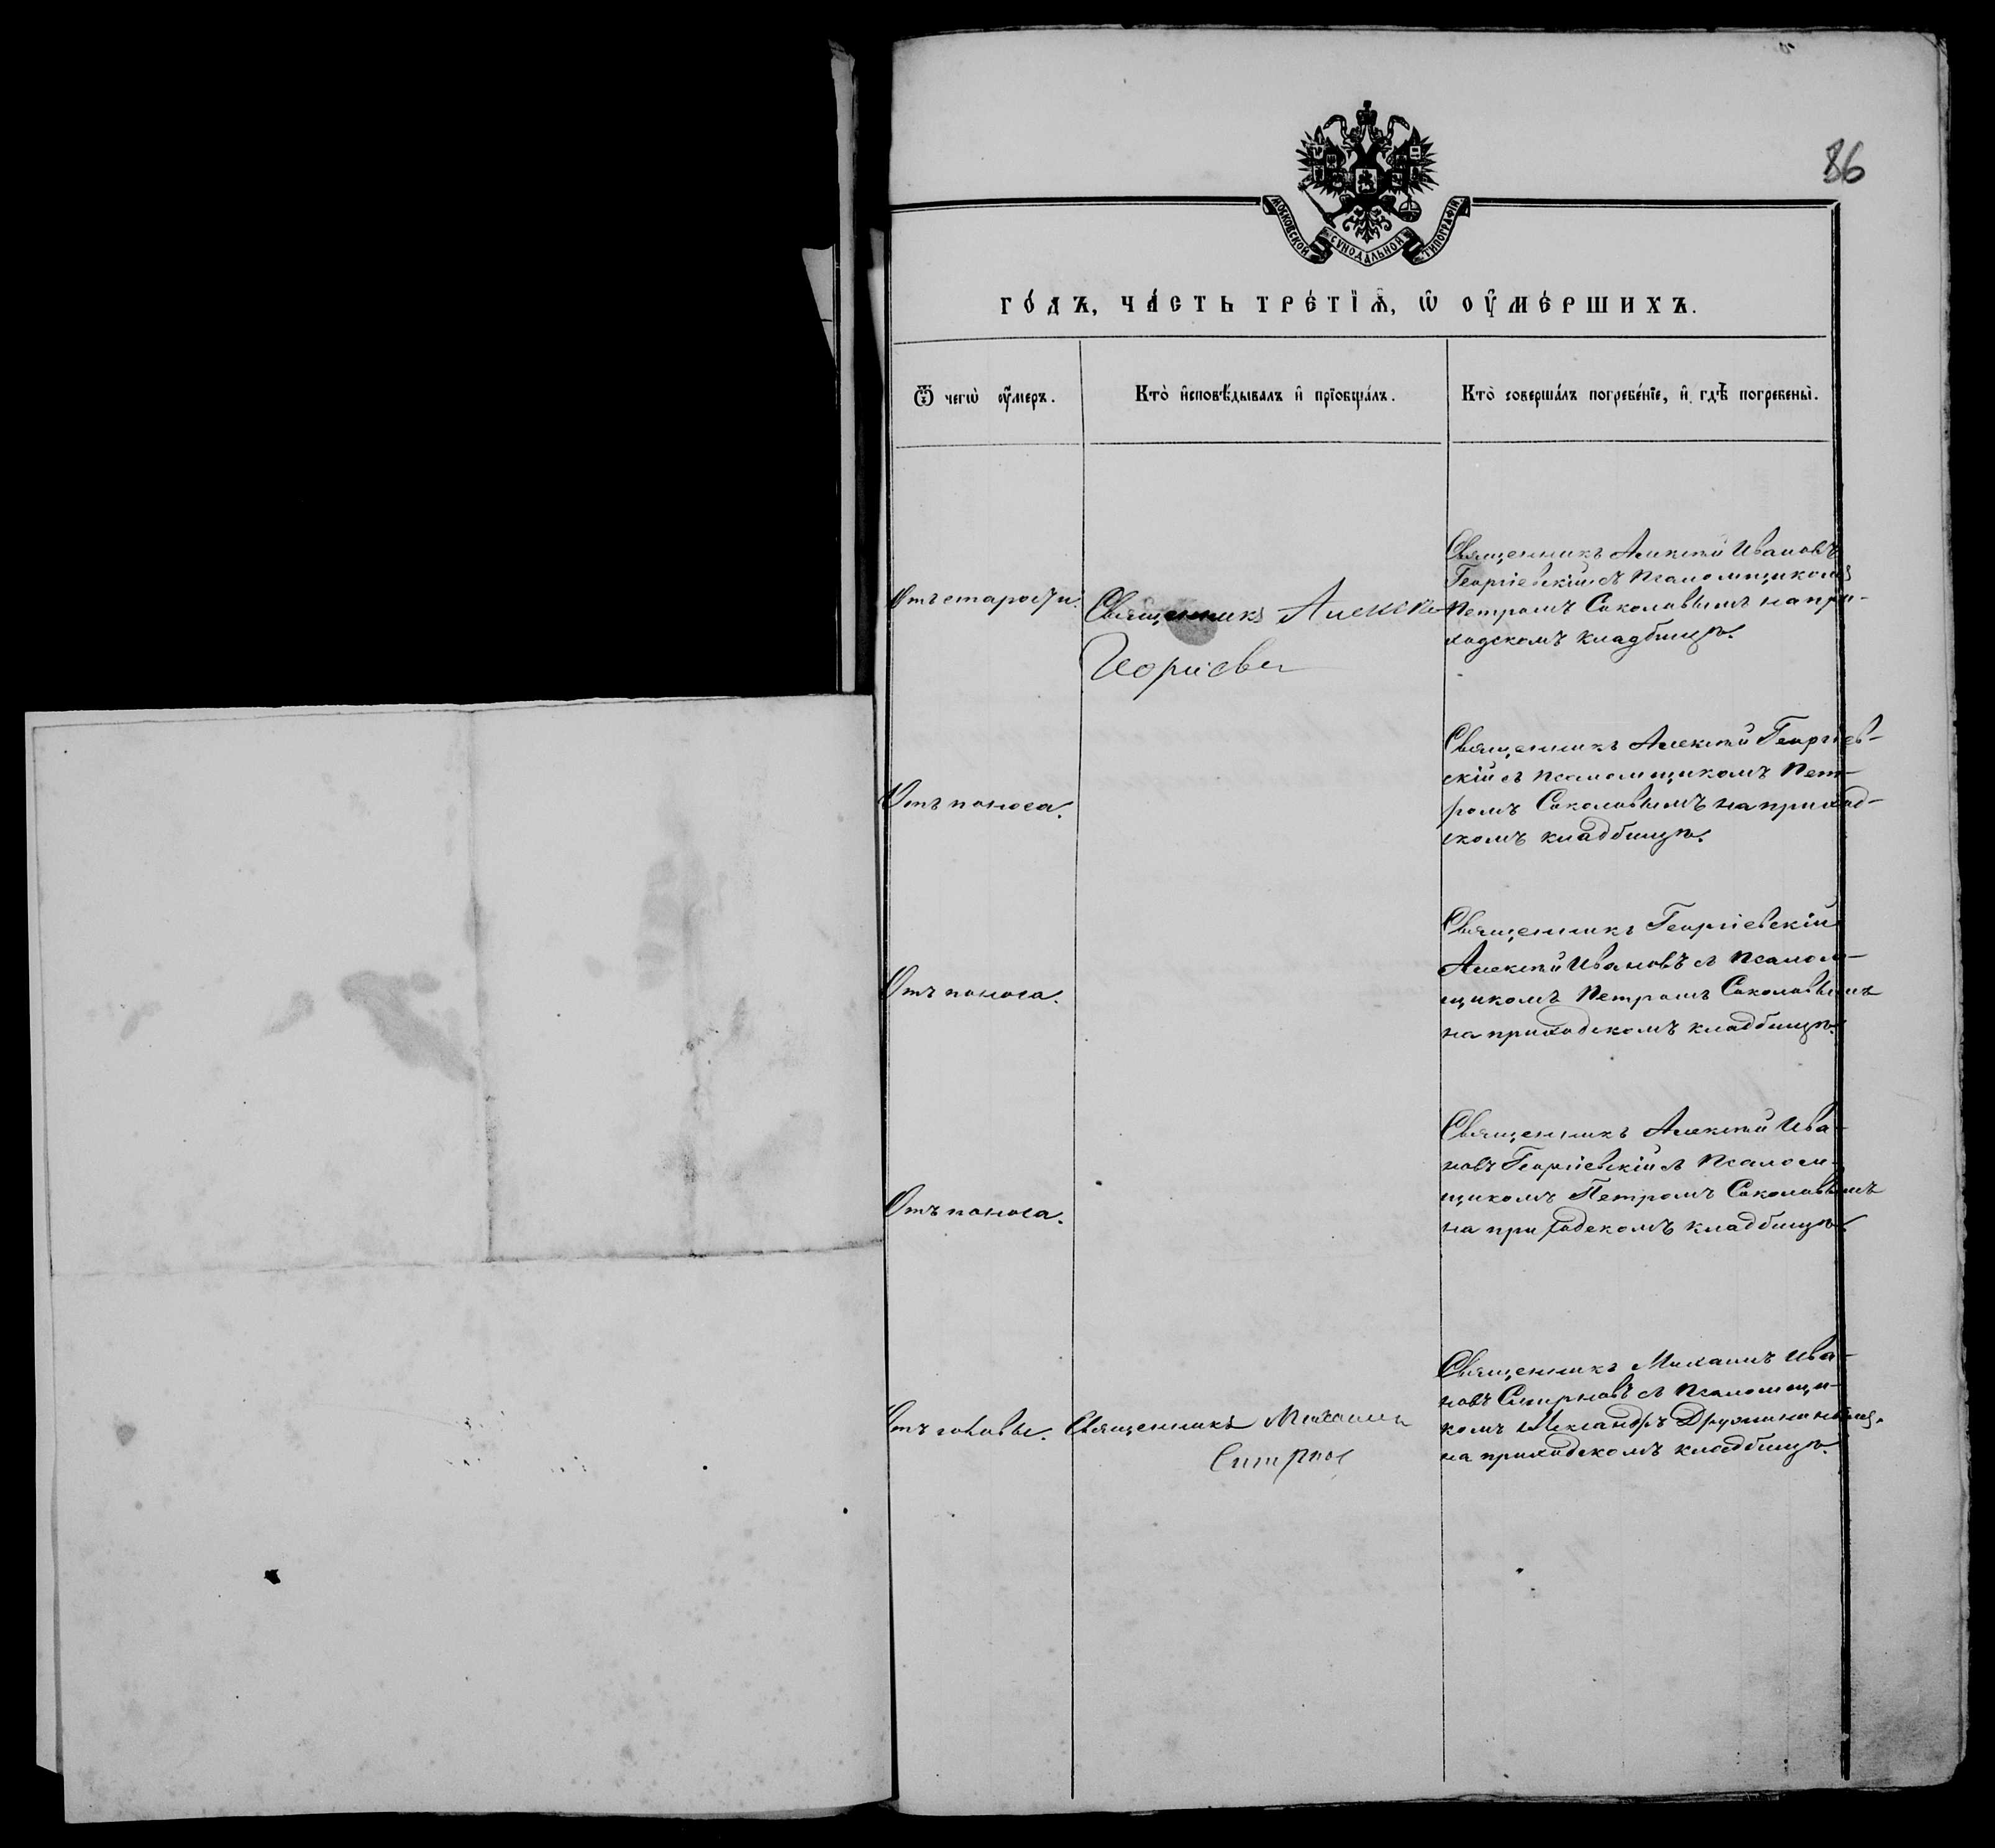 86
МОСКОВСКОЙ СѴНОДАЛЬНОЙ ТИПОГРАФІИ
ГО́ДЪ, ЧА́СТЬ ТРЕ́ТІѦ, Ѡ҆ ОУ҆МЕ́РШИХЪ.
Ѿ чегѡ̀ оу҆́меръ.
Кто̀ и҆сповѣ́дывалъ и҆ прїобща́лъ.
Кто̀ соверша́лъ погребе́нїе, и҆ гдѣ̀ погребены̀.
Отъ старости.
Священникъ Алексѣй
Священникъ Алексѣй Ивановъ
Георгіевскій съ Псаломщикомъ
Петромъ Соколовымъ на при-
ходскомъ кладбищѣ.
Отъ поноса.
Священникъ Алексѣй Георгіев-
скій съ псаломщикомъ Пет-
ромъ Соколовымъ на приход-
скомъ кладбищѣ.
Отъ поноса.
Священникъ Георгіевскій
Алексѣй Ивановъ съ Псалом-
щикомъ Петромъ Соколовымъ
на приходскомъ кладбищѣ.
Отъ поноса.
Священникъ Алексѣй Ива-
новъ Георгіевскій съ Псалом-
щикомъ Петромъ Соколовымъ
на приходскомъ кладбищѣ.
Отъ
Священникъ Михаилъ
Смирнов
Священникъ Михаилъ Ива-
новъ Смирновъ съ Псаломщи-
комъ
на приходскомъ кладбищѣ.